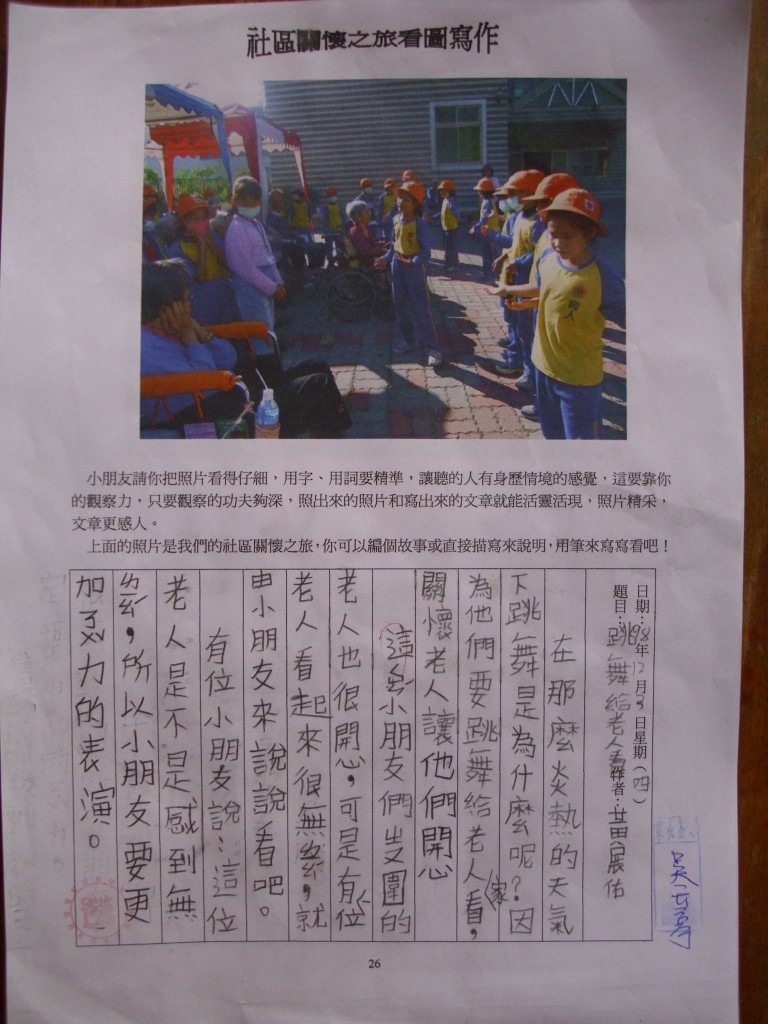 社區關懷之旅看圖寫作
小朋友請你把照片看得仔細，用字、用詞要精準，讓聽的人有身歷情境的感覺，這要靠你
的觀察力，只要觀察的功夫夠深，照出來的照片和寫出來的文章就能活靈活現，照片精采，
文章更感人。
上面的照片是我們的社區關懷之旅，你可以編個故事或直接描寫來說明，用筆來寫寫看吧！
日期：98年12月3日星期（四）
題目：跳舞給老人看作者：黃展佑
在那麼火熱的天氣
下跳舞是為什麼呢？因
為他們要跳舞給老人家看，
關懷老人讓他們開心
這些小朋友們
老人也很開心，可是有位
老人看起來很無聊，就
由小朋友來說說看吧。
有位小朋友說：這位
老人是不是感到無
ㄌㄧㄠˊ，所以小朋友要更
加ㄋㄨˇ力的表演。
26